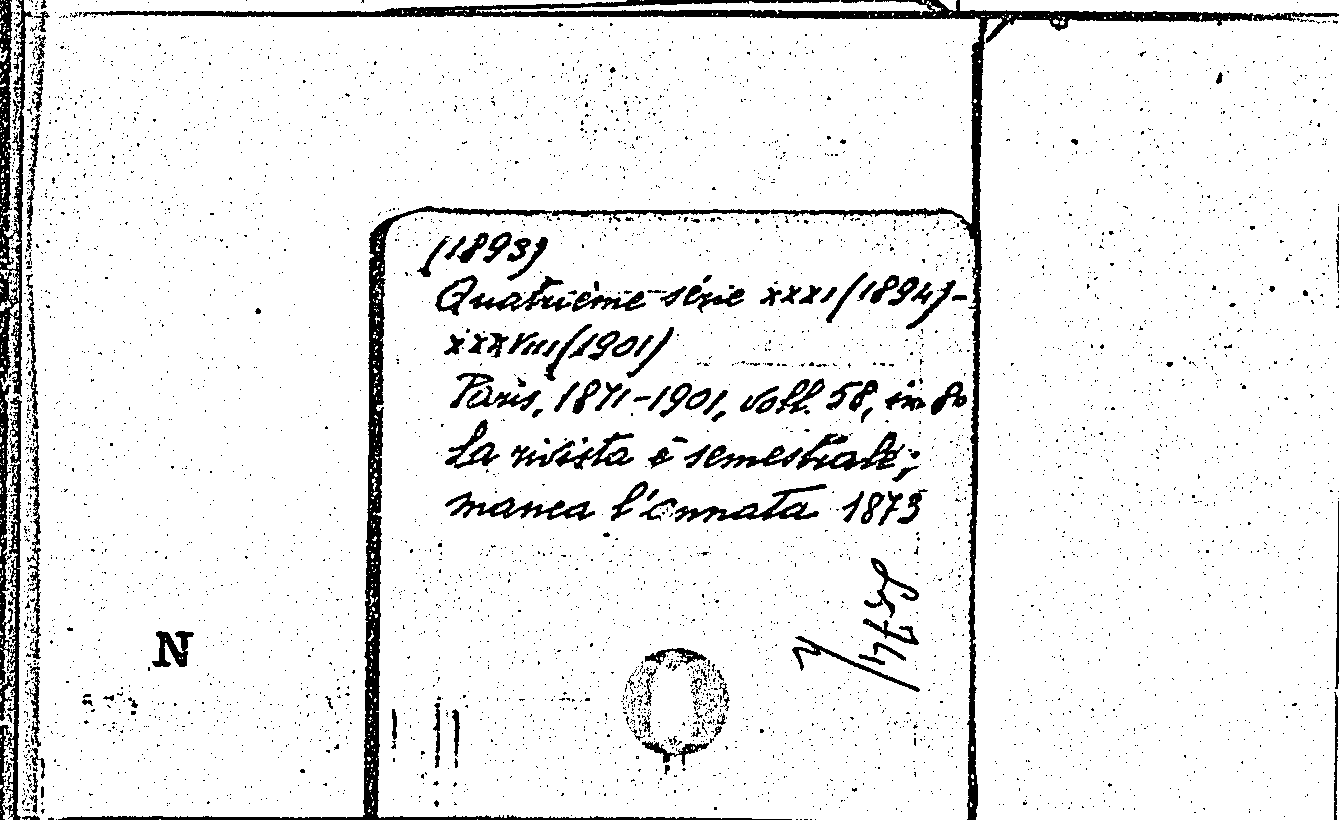 (1893)
Quatrième série XXXI (1894)-
XXXVIII (1901)
Paris, 1871-1901, voll. 58, in 8º
La rivista è semestrale;
manca l'annata 1873
N